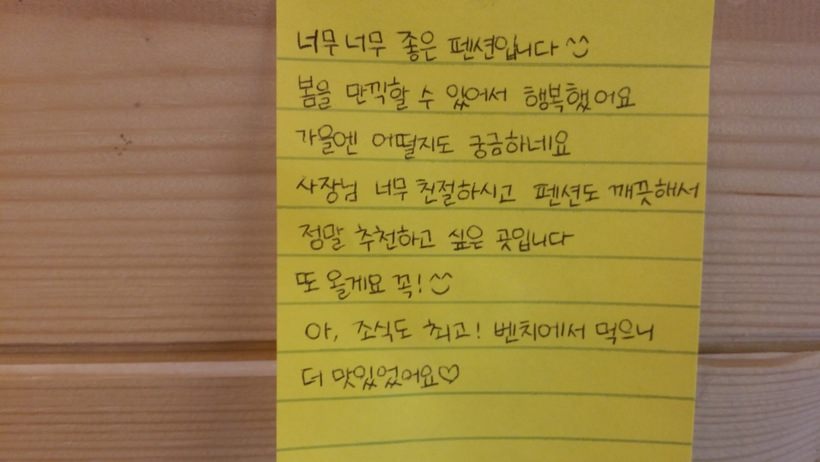 너무 너무 좋은 펜션입니다 ^^
봄을 만끽할 수 있어서 행복했어요
가을엔 어떨지도 궁금하네요
사장님 너무 친절하시고 펜션도 깨끗해서
정말 추천하고 싶은 곳입니다
또 올게요 꼭! ^^
아, 조식도 최고! 벤치에서 먹으니
더 맛있었어요♡